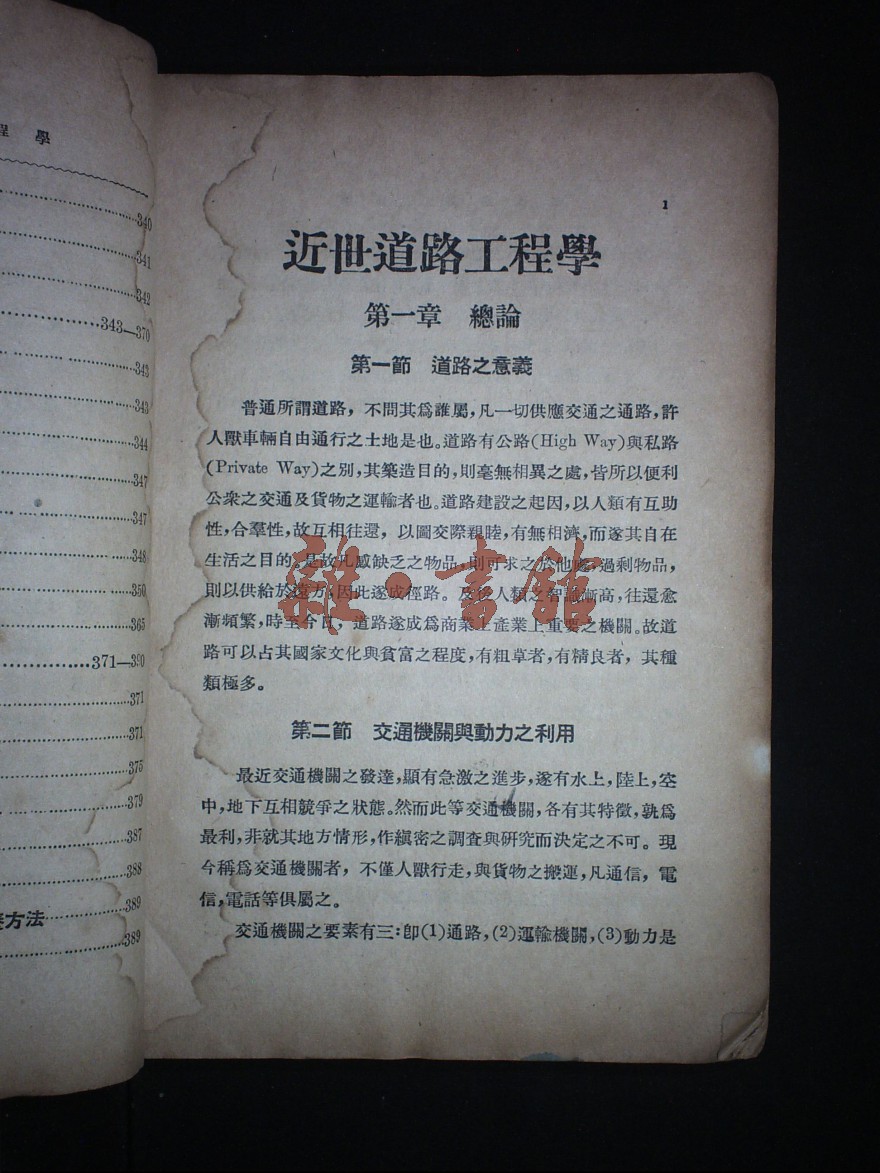 程 學
340
341
342
343—370
343
343
344
347
347
348
350
365
371—390
371
371
375
379
387
388
389
方法
389
1
近世道路工程學
第一章 總論
第一節 道路之意義
普通所謂道路，不問其爲誰屬，凡一切供應交通之通路，許
人獸車輛自由通行之土地是也。道路有公路(High Way)與私路
(Private Way)之別，其築造目的，則毫無相異之處，皆所以便利
公衆之交通及貨物之運輸者也。道路建設之起因，以人類有互助
性，合羣性，故互相往還，以圖交際親睦，有無相濟，而遂其自在
生活之目的。是故凡感缺乏之物品，則可求之於他處，過剩物品，
則以供給於遠方，因此遂成徑路。及後人類之智識漸高，往還愈
漸頻繁，時至今日，道路遂成爲商業上產業上重要之機關。故道
路可以占其國家文化與貧富之程度，有粗草者，有精良者，其種
類極多。
雜·書館
第二節 交通機關與動力之利用
最近交通機關之發達，顯有急激之進步，遂有水上，陸上，空
中，地下互相競爭之狀態。然而此等交通機關，各有其特徵，孰爲
最利，非就其地方情形，作縝密之調查與研究而決定之不可。現
今稱爲交通機關者，不僅人獸行走，與貨物之搬運，凡通信，電
信，電話等俱屬之。
交通機關之要素有三：卽(1)通路，(2)運輸機關，(3)動力是